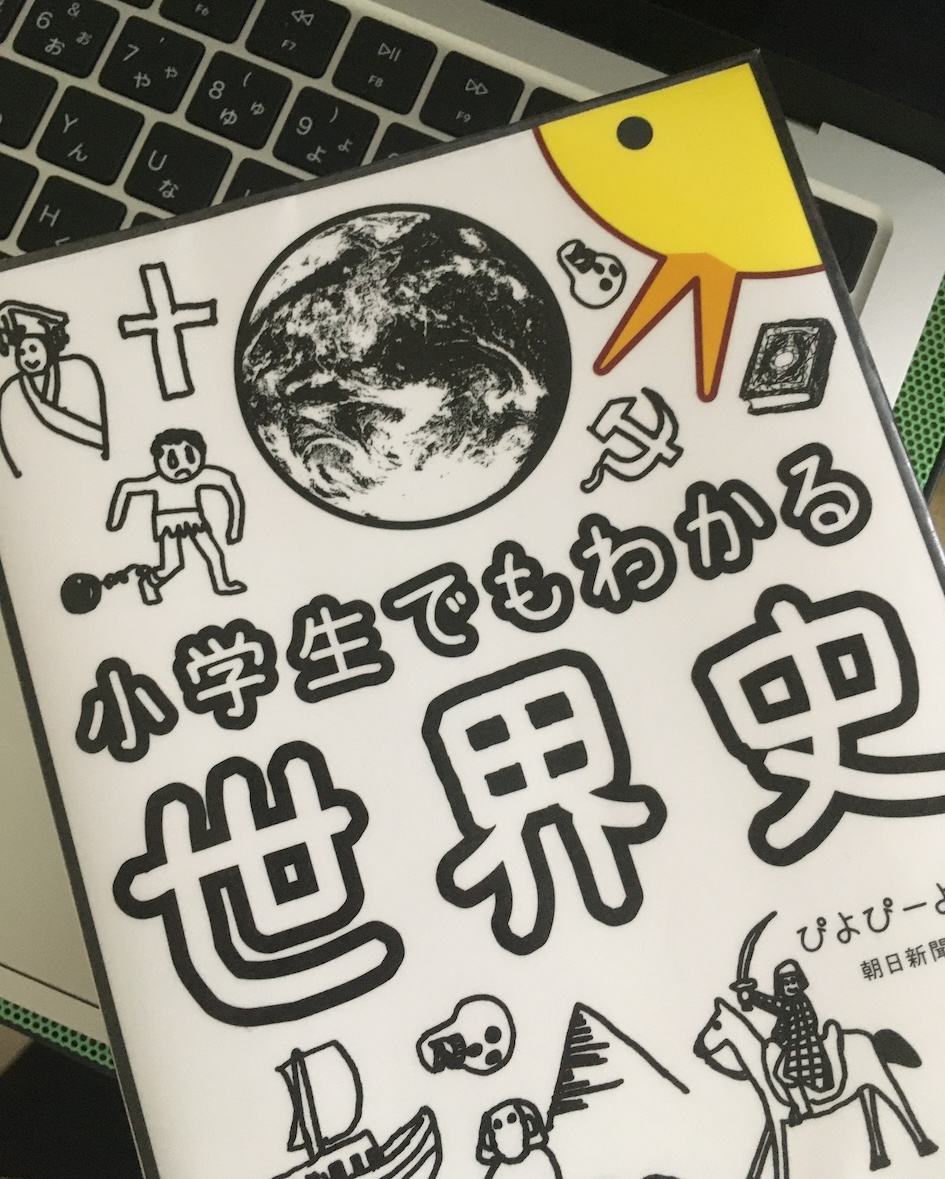 6 & お ぉ
7 ' や ゃ
8 ( ゆ ゅ
9 ) よ ょ
F6
F7
F8
F9
Y ん
U な
H く
小学生でもわかる
世界史
ぴよぴーよ
朝日新聞